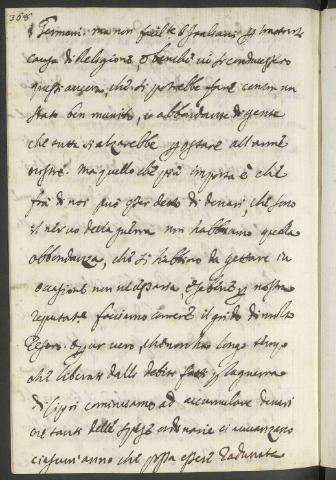 368
Germani. ma non facil.te d'Italiani p trattarsi
causa di Religione, e benche vi si conducessero
questi ancora, che si potrebbe fare contra una
stato ben munito, et abbondante di gente
che tutta si alzarebbe per prestare all'armi
nostre. ma quello che più importa è che
frà di noi può esser detto di denari, che sono
il nervo della guerra non habbiamo quella
abbondanza, che si habbino da gettare in
occasione non necessaria, e sebene p nostra
reputat.e facciamo correre il grido di molto
Tesoro. è pur vero, che non ha longo tempo
che liberati dalli debiti fatti p la guerra
di Cipri cominciamo ad accumulare denari
ne tanti delle spese ordinarie ci avanzano
ciascun'anno che possa essere radunata